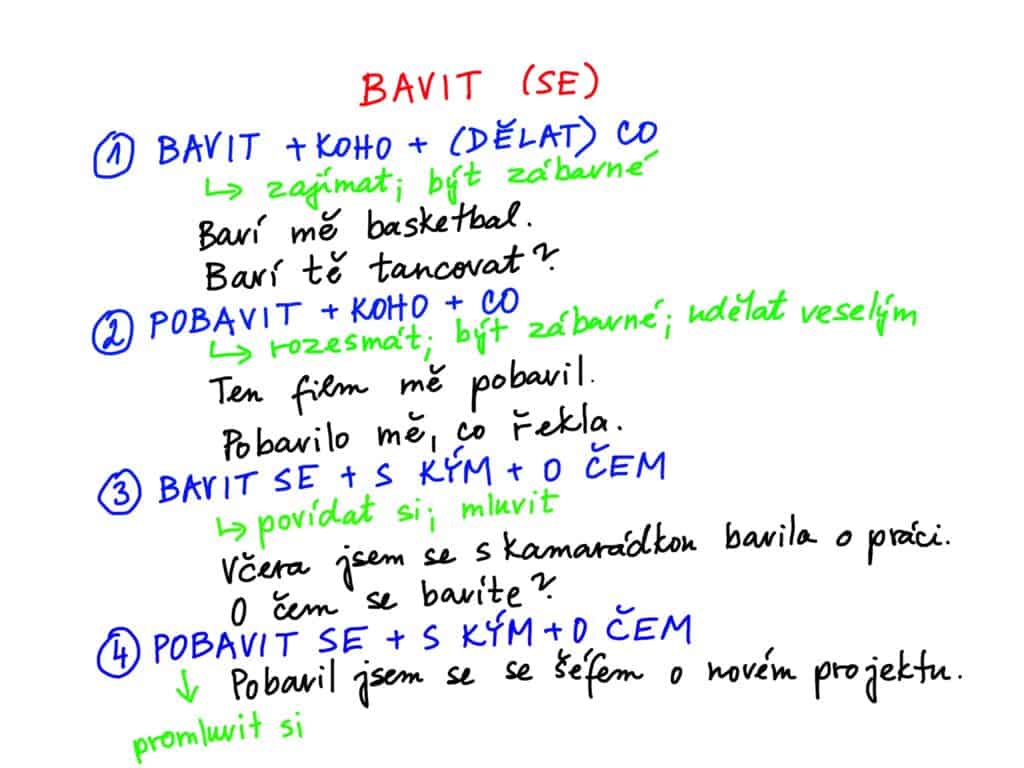 BAVIT (SE)
① BAVIT + KOHO + (DĚLAT) CO
↳ zajímat; být zábavné
Baví mě basketbal.
Baví tě tancovat?
② POBAVIT + KOHO + CO
↳ rozesmát; být zábavné; udělat veselým
Ten film mě pobavil.
Pobavilo mě, co řekla.
③ BAVIT SE + S KÝM + O ČEM
↳ povídat si; mluvit
Včera jsem se s kamarádkou bavila o práci.
O čem se bavíte?
④ POBAVIT SE + S KÝM + O ČEM
↓ Pobavil jsem se se šéfem o novém projektu.
promluvit si